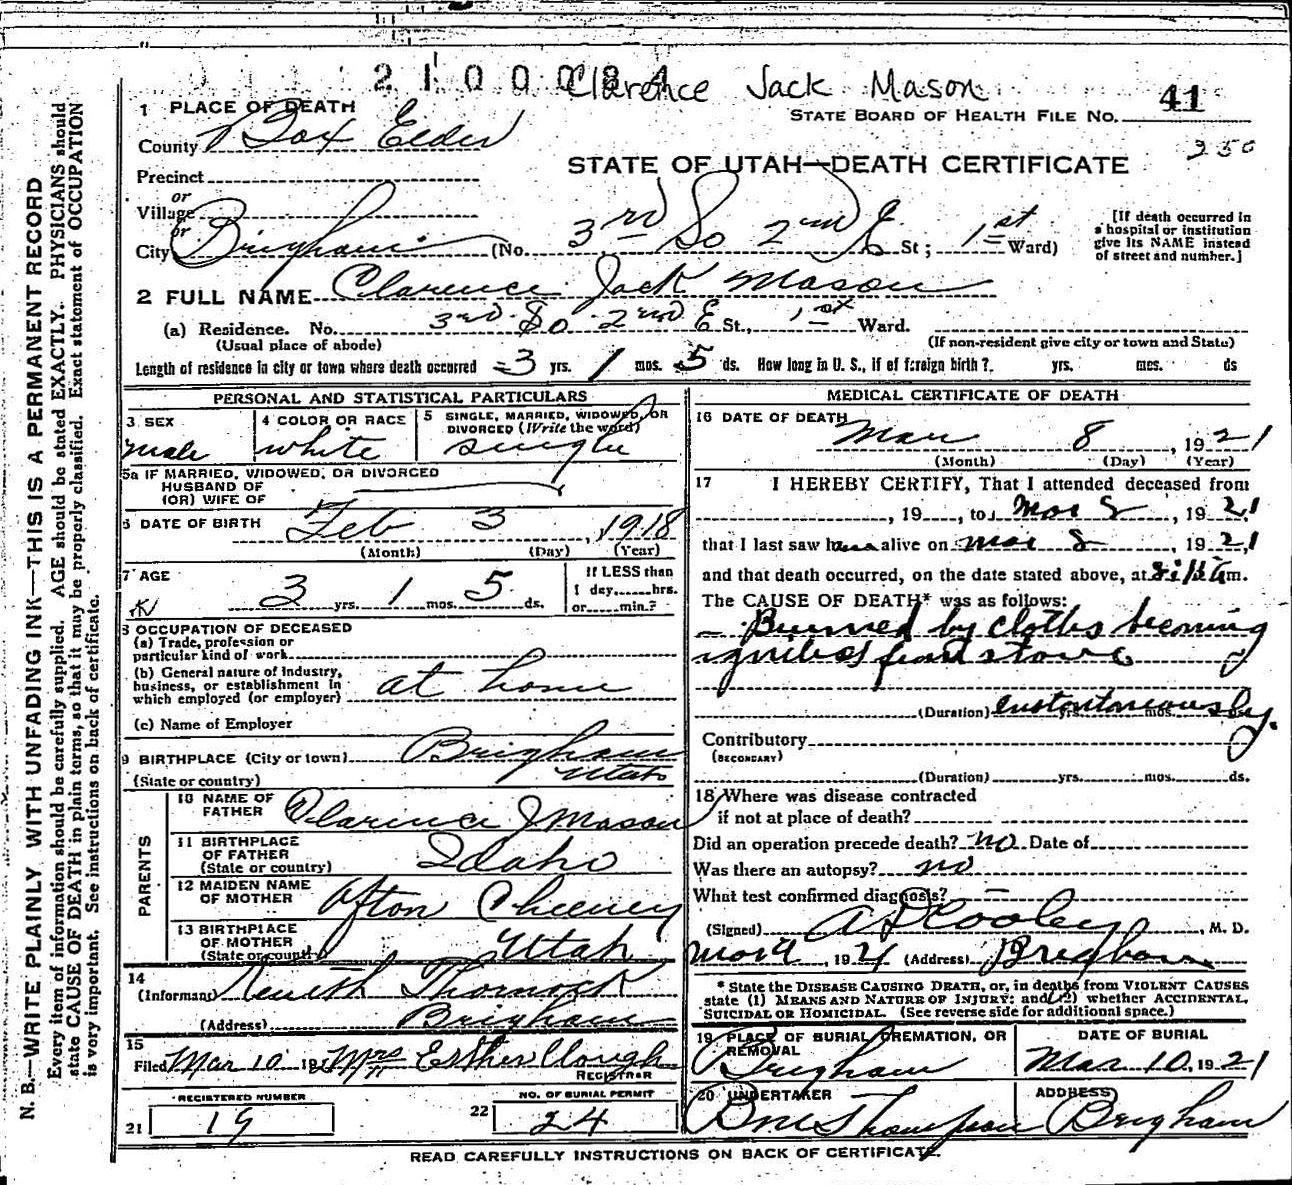 2 1 0 0 0 0 8 4
Clarence Jack Mason
41
STATE BOARD OF HEALTH FILE NO.
250
STATE OF UTAH—DEATH CERTIFICATE
1 PLACE OF DEATH
County Box Elder
Precinct
or
Village
or
City Brigham (No. 3rd So 2nd E St; 1st Ward)
[If death occurred in
a hospital or institution
give its NAME instead
of street and number.]
2 FULL NAME Clarence Jack Mason
(a) Residence. No. 3rd So 2nd E St., 1st Ward.
(Usual place of abode)
(If non-resident give city or town and State)
Length of residence in city or town where death occurred 3 yrs. 1 mos. 5 ds. How long in U. S., if of foreign birth? yrs. mos. ds
PERSONAL AND STATISTICAL PARTICULARS
3 SEX
male
4 COLOR OR RACE
white
5 SINGLE, MARRIED, WIDOWED, OR
DIVORCED (Write the word)
single
5a IF MARRIED, WIDOWED, OR DIVORCED
HUSBAND OF
(OR) WIFE OF
6 DATE OF BIRTH Feb 3, 1918
(Month) (Day) (Year)
7 AGE
3 yrs. 1 mos. 5 ds.
If LESS than
1 day,......hrs.
or......min.?
8 OCCUPATION OF DECEASED
(a) Trade, profession or
particular kind of work
(b) General nature of industry,
business, or establishment in
which employed (or employer) at home
(c) Name of Employer
9 BIRTHPLACE (City or town) Brigham
(State or country) Utah
PARENTS
10 NAME OF
FATHER Clarence J Mason
11 BIRTHPLACE
OF FATHER
(State or country) Idaho
12 MAIDEN NAME
OF MOTHER Afton Cheeney
13 BIRTHPLACE
OF MOTHER
(State or country) Utah
14
(Informant) Thornock
(Address) Brigham
15
Filed Mar 10 192 Mrs Esther Clough
REGISTRAR
REGISTERED NUMBER
21 19
NO. OF BURIAL PERMIT
22 24
MEDICAL CERTIFICATE OF DEATH
16 DATE OF DEATH
Mar 8, 1921
(Month) (Day) (Year)
17 I HEREBY CERTIFY, That I attended deceased from
, 19 , to Mar 8, 1921
that I last saw h alive on Mar 8, 1921
and that death occurred, on the date stated above, at 8:15 A m.
The CAUSE OF DEATH* was as follows:
Burned by cloths becoming
ignited from stove
(Duration) yrs. mos. ds.
Contributory
(SECONDARY)
(Duration) yrs. mos. ds.
18 Where was disease contracted
if not at place of death?
Did an operation precede death? no Date of
Was there an autopsy? no
What test confirmed diagnosis? —
(Signed) A D Cooley, M. D.
Mar 9, 1921 (Address) Brigham
* State the DISEASE CAUSING DEATH, or, in deaths from VIOLENT CAUSES
state (1) MEANS AND NATURE OF INJURY: and (2) whether ACCIDENTAL,
SUICIDAL OR HOMICIDAL. (See reverse side for additional space.)
19 PLACE OF BURIAL, CREMATION, OR
REMOVAL
Brigham
DATE OF BURIAL
Mar 10, 1921
20 UNDERTAKER
Thompson
ADDRESS
Brigham
READ CAREFULLY INSTRUCTIONS ON BACK OF CERTIFICATE.
N. B.—WRITE PLAINLY, WITH UNFADING INK—THIS IS A PERMANENT RECORD
Every item of information should be carefully supplied. AGE should be stated EXACTLY. PHYSICIANS should
state CAUSE OF DEATH in plain terms, so that it may be properly classified. Exact statement of OCCUPATION
is very important. See instructions on back of certificate.